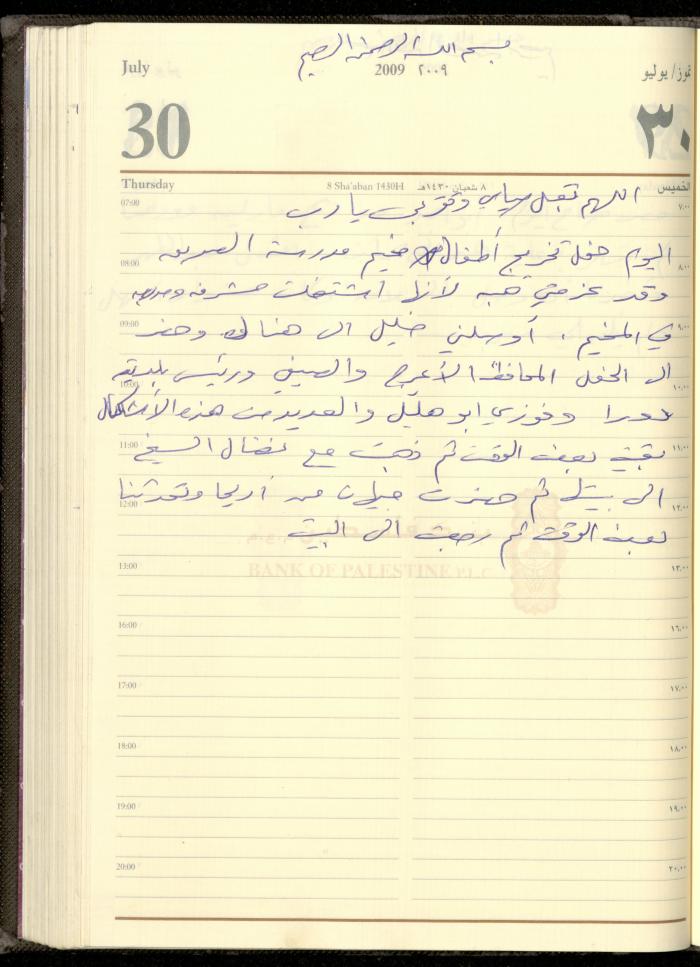 بسم الله الرحمن الرحيم
July 2009 ٢٠٠٩ تموز/يوليو
30 ٣٠
Thursday 8 Sha'aban 1430H ٨ شعبان ١٤٣٠هـ الخميس
اللهم تقبل صيامي وتقربي يا رب
07:00 ٧,٠٠
اليوم حفل تخريج أطفال مخيم مدرسة
08:00 ٨,٠٠
وقد عزمتني هبه لأنها اشتغلت مشرفه
09:00 ٩,٠٠
في المخيم . أوصلني خليل الى هناك وحضر
الى الحفل المحافظ الأعرج ورئيس بلدية
10:00 ١٠,٠٠
دورا وفوزي ابو هليل والعديد من هذه الأشكال
11:00 ١١,٠٠
بقيت بعض الوقت ثم ذهبت مع نضال الشيخ
الى بيتك ثم حضرت جيهان من أريحا وتحدثنا
12:00 ١٢,٠٠
بعض الوقت ثم رجعت الى البيت
13:00 ١٣,٠٠
BANK OF PALESTINE P.L.C
16:00 ١٦,٠٠
17:00 ١٧,٠٠
18:00 ١٨,٠٠
19:00 ١٩,٠٠
20:00 ٢٠,٠٠